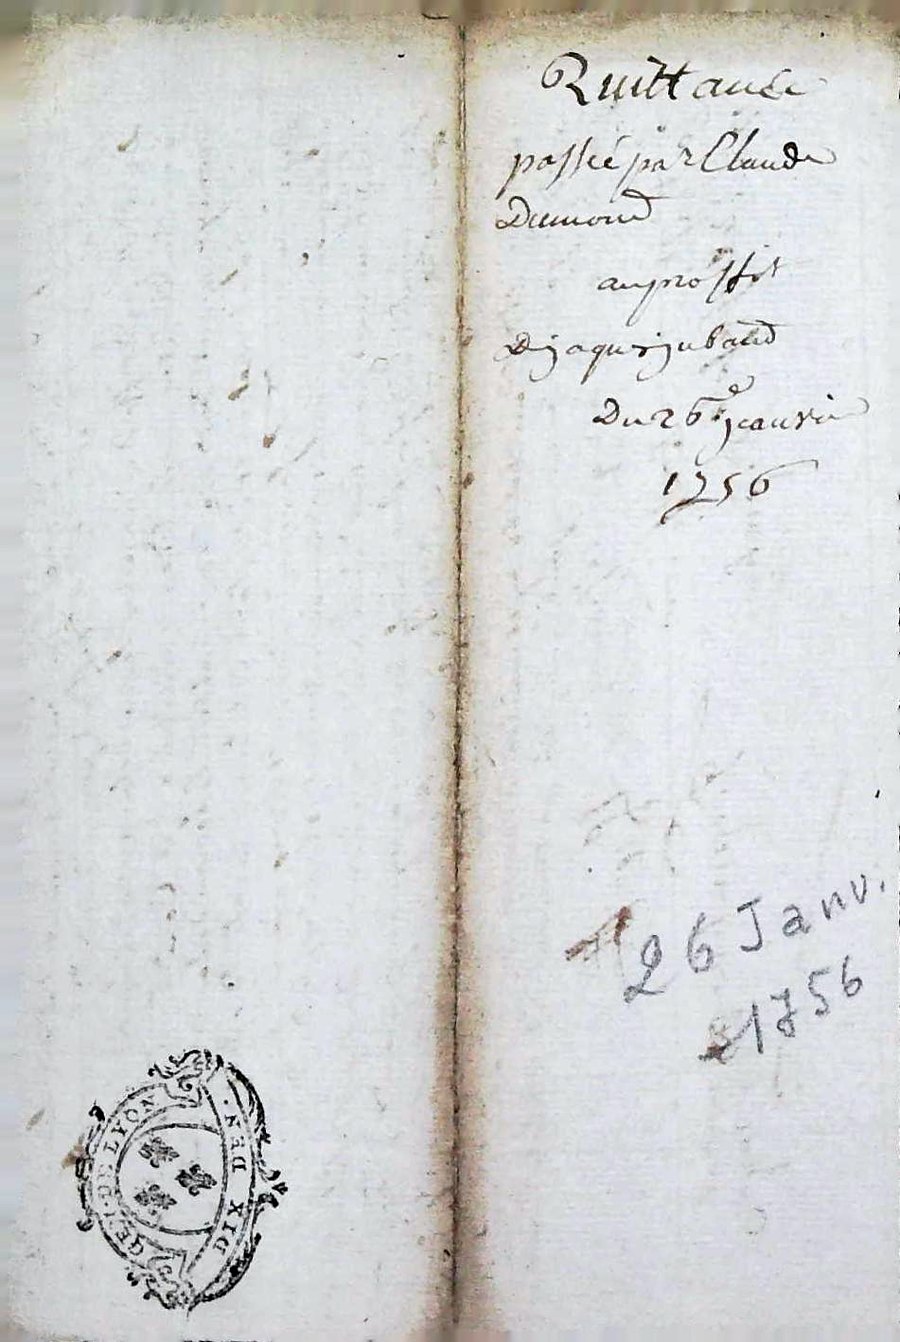 Quittance
passée par Claude
Dumond
au proffit
De jaques jubaud
Du 26.e jeanvie
1756
26 Janv.
1756
GEN. DE LYON
DIX DEN.